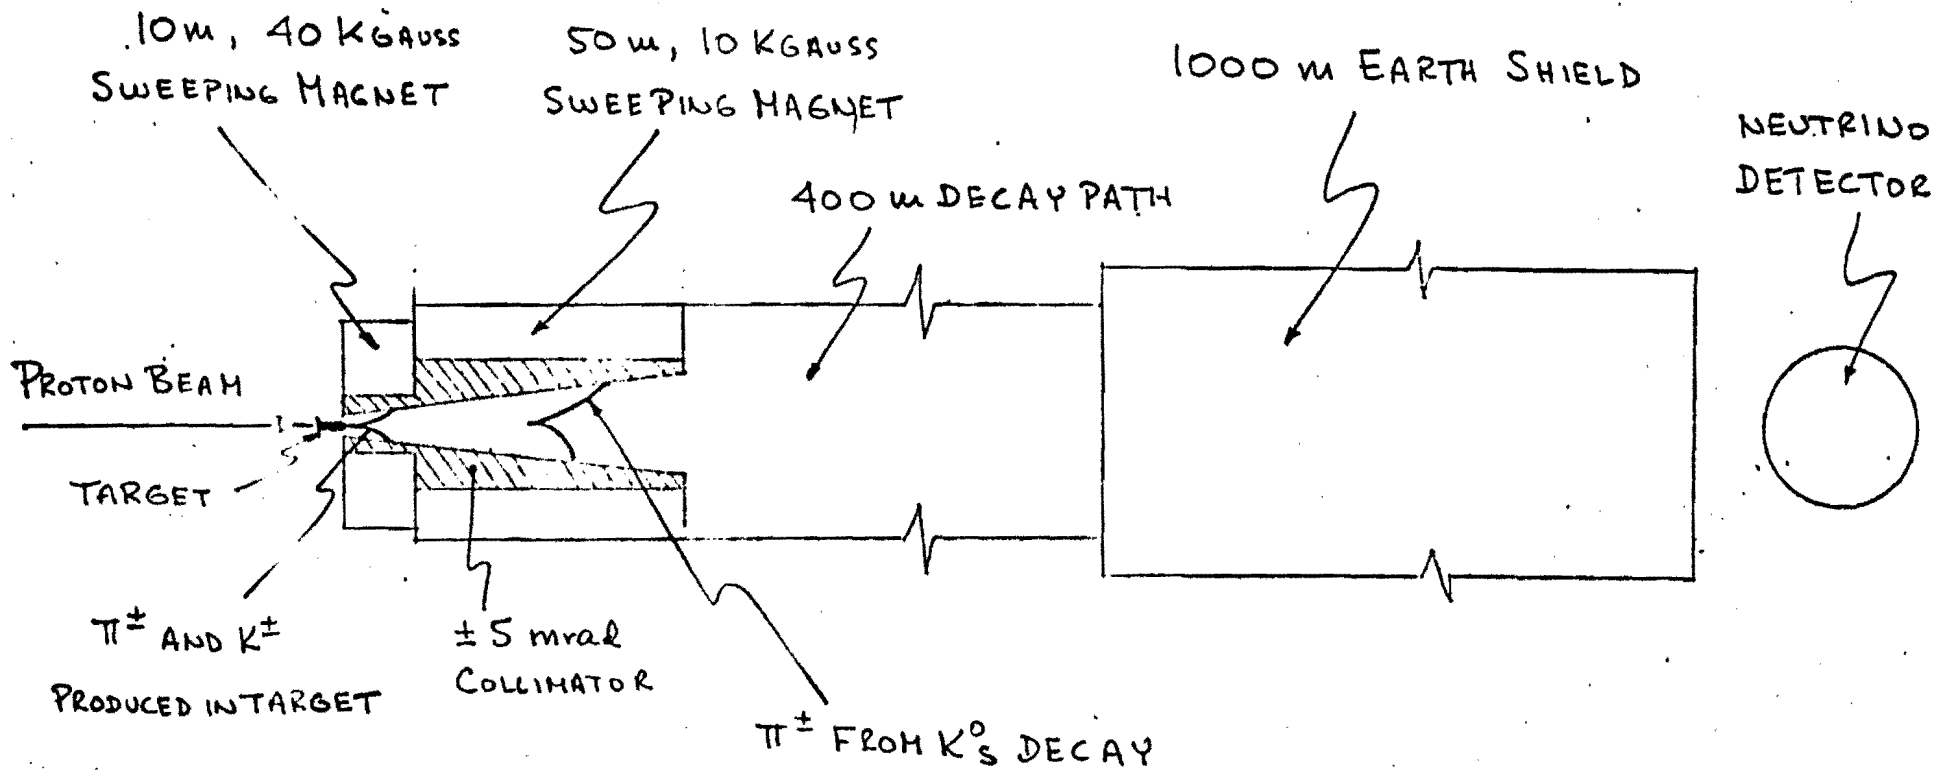 10m, 40 KGAUSS
SWEEPING MAGNET
50 m, 10 KGAUSS
SWEEPING MAGNET
1000 m EARTH SHIELD
NEUTRINO
DETECTOR
400 m DECAY PATH
PROTON BEAM
TARGET
π± AND K±
PRODUCED IN TARGET
± 5 mrad
COLLIMATOR
π± FROM K⁰s DECAY